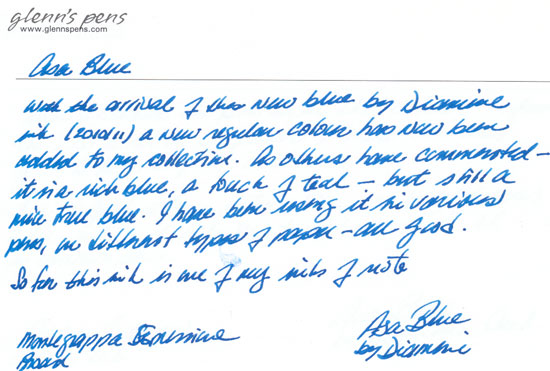 glenn's pens
www.glennspens.com
Asa Blue
With the arrival of this new blue by Diamine
ink (2010/11) a new regular colour has now been
added to my collection. As others have commented –
it is a rich blue, a touch of teal – but still a
nice true blue. I have been using it in various
pens, on different types of paper – all good.
So far this ink is one of my inks of note
Montegrappa
Broad
Asa Blue
by Diamine